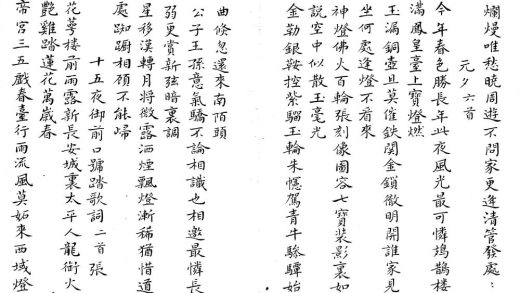 爛熳唯愁曉周遊不問家更逢清管發處:
元夕六首
今年春色勝長年此夜風光最可憐鳷鵲樓
滿鳳皇臺上寶燈燃
玉漏銅壺且莫催鈇関金鎖徹明開誰家見
坐何處逢燈不看來
神燈佛火百輪張刻像圖容七寶装影裏如
說空中似散玉毫光
金勒銀鞍控紫騮玉輪朱幰駕青牛驂驔始
曲倏忽還來南陌頭
公子王孫意氣驕不論相識也相邀最憐長
弱更賞新弦暗裏調
星移漢轉月將微露洒煙飄燈漸稀猶惜道
處踟躕相顧不能歸
十五夜御前口號踏歌詞二首 張
花萼樓前雨露新長安城裏太平人龍銜火
艷雞踏蓮花萬歳春
帝宮三五戲春臺行雨流風莫妬來西域燈